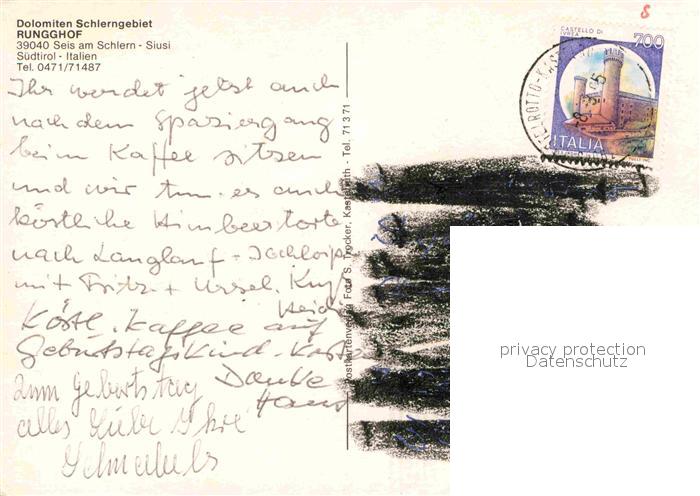 Dolomiten Schlerngebiet
RUNGGHOF
39040 Seis am Schlern - Siusi
Südtirol - Italien
Tel. 0471/71487
Ihr werdet jetzt auch
nach dem Spaziergang
beim Kaffee sitzen
und wir tun es auch
köstliche Himbeertorte
nach Langlauf -
mit Fritz + Ursel.
Heidi
Köstl. Kaffee auf
Geburtstagskind-Kosten
Danke
Hans
zum Geburtstag
alles Liebe Ihre
Schnabels
Foto S. Trocker, Kastelruth - Tel. 71371
8
CASTELLO DI
IVREA
700
ITALIA
privacy protection
Datenschutz